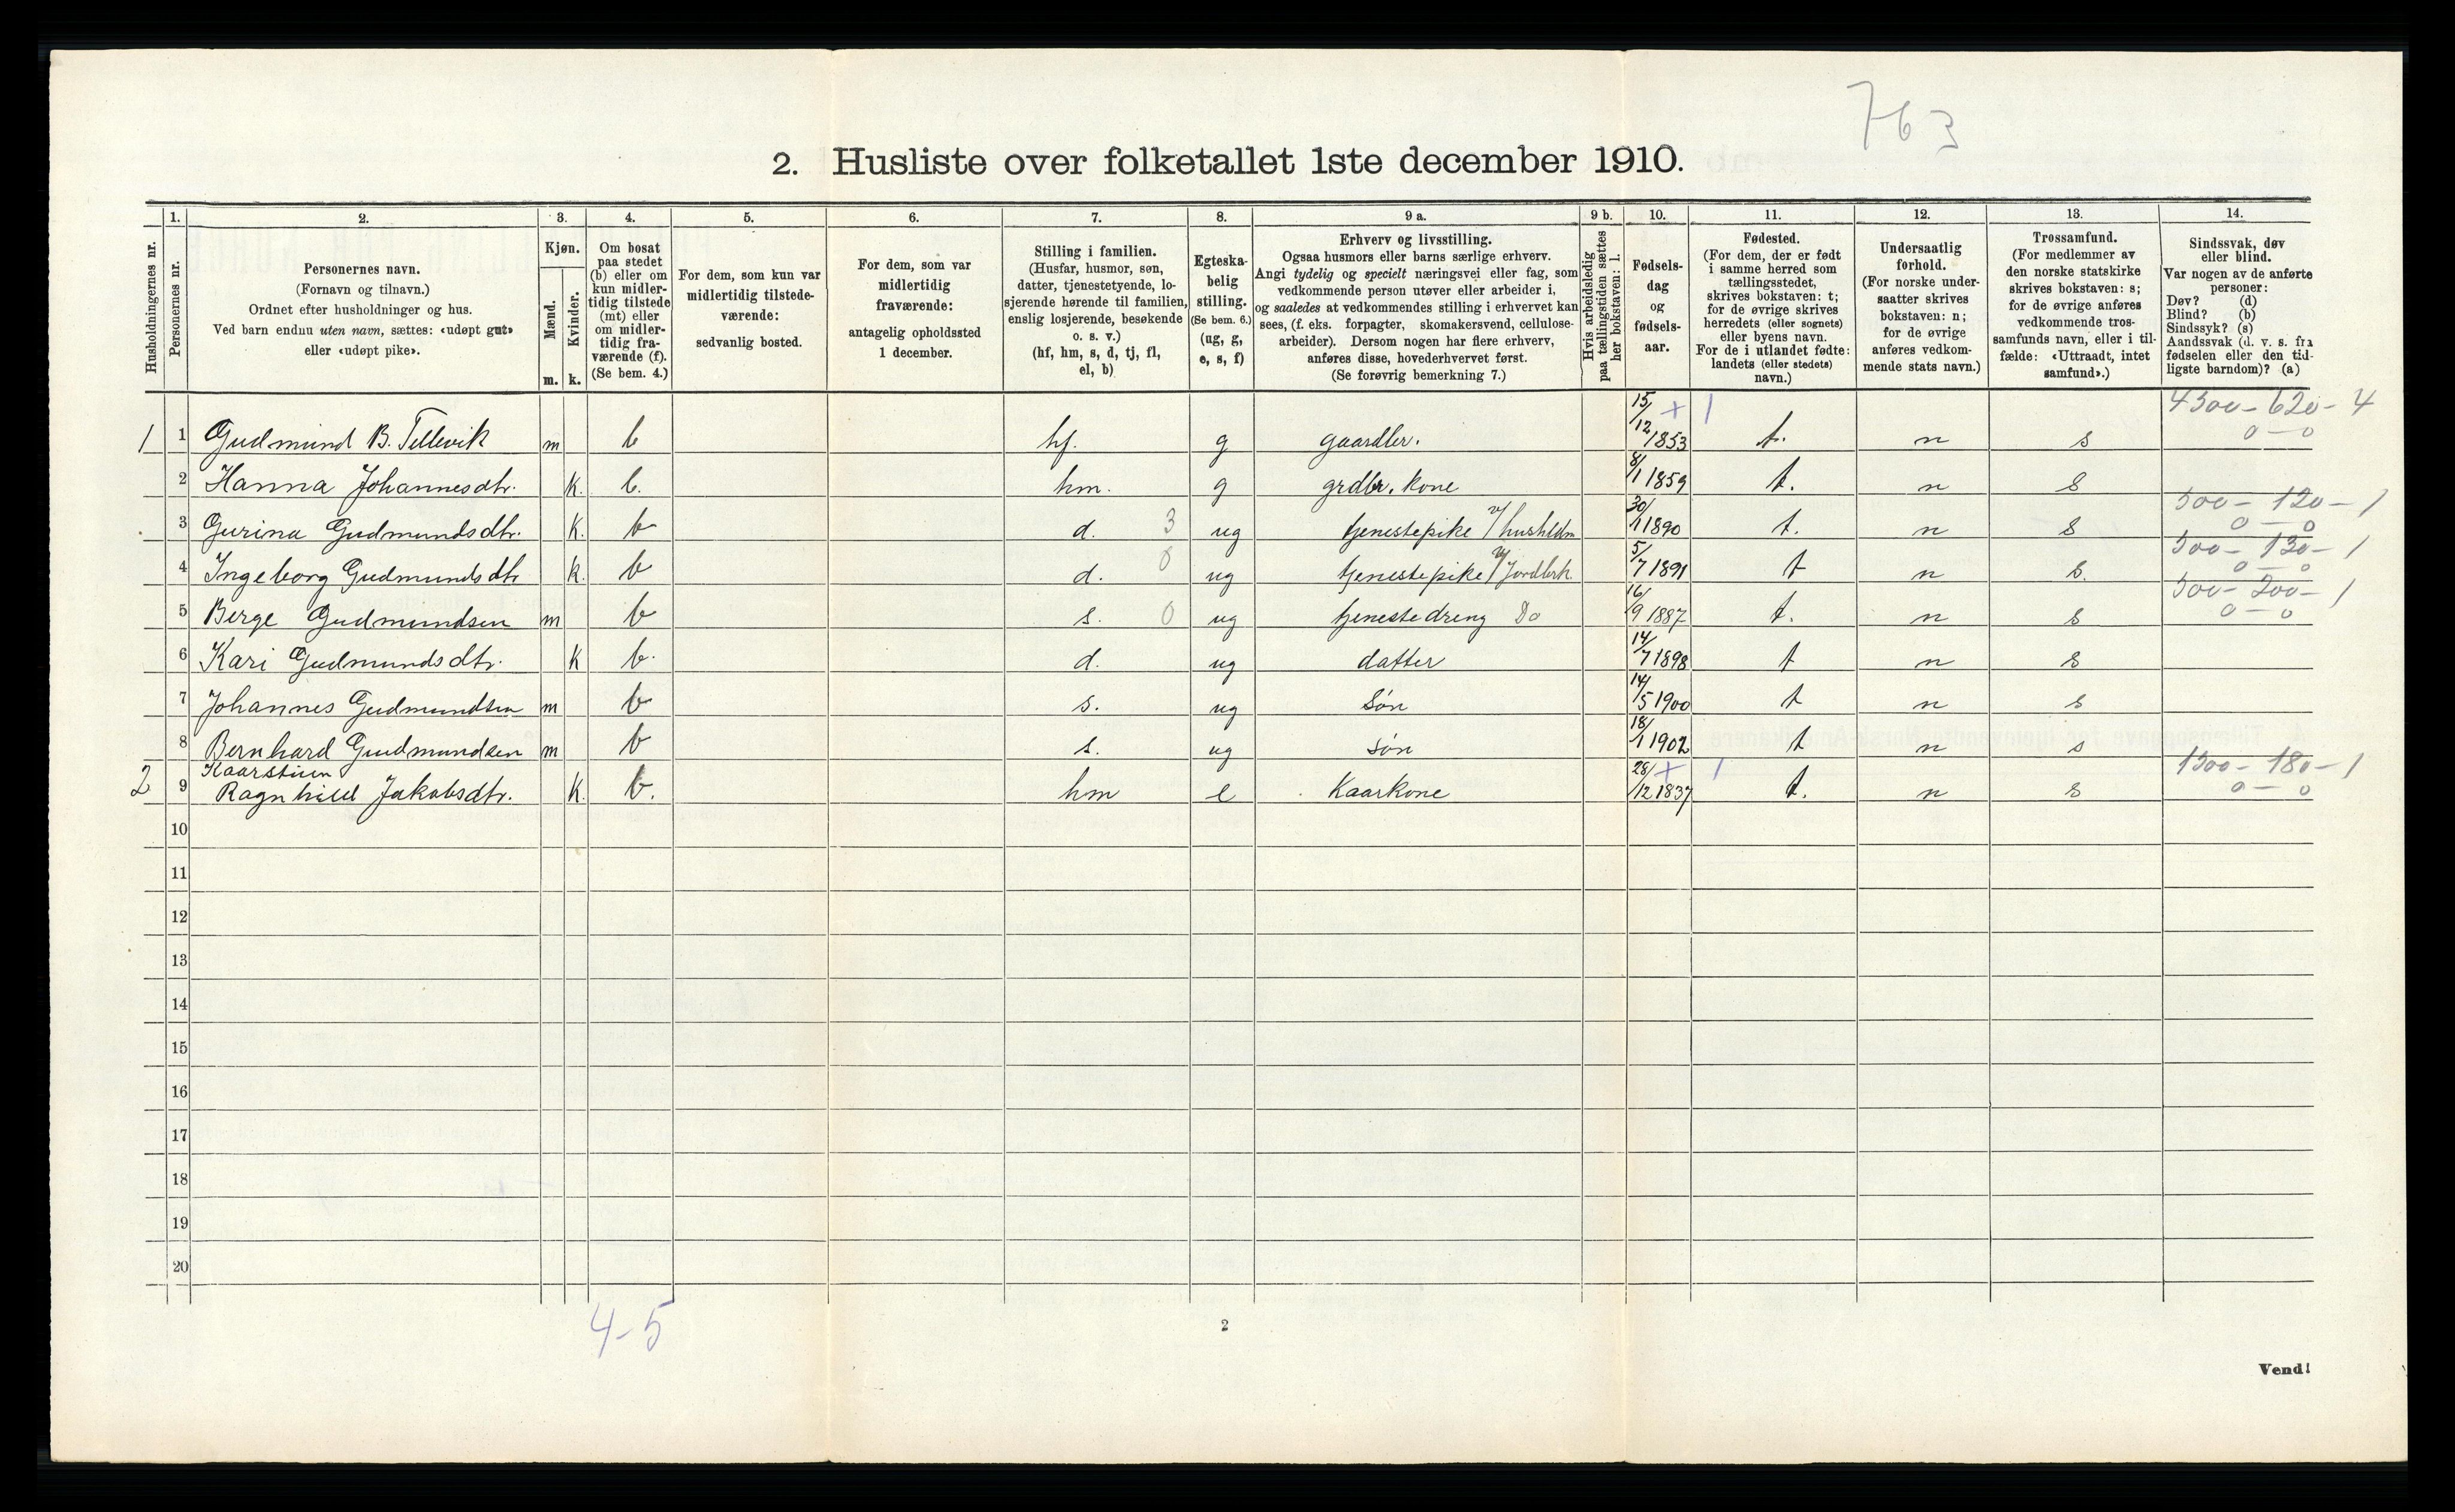 763
2. Husliste over folketallet 1ste december 1910.
Husholdningernes nr.
1. Personernes nr.
2. Personernes navn.
(Fornavn og tilnavn.)
Ordnet efter husholdninger og hus.
Ved barn endnu uten navn, sættes: «udøpt gut»
eller «udøpt pike».
3. Kjøn.
Mænd. m.
Kvinder. k.
4. Om bosat
paa stedet
(b) eller om
kun midler-
tidig tilstede
(mt) eller
om midler-
tidig fra-
værende (f).
(Se bem. 4.)
5. For dem, som kun var
midlertidig tilstede-
værende:
sedvanlig bosted.
6. For dem, som var
midlertidig
fraværende:
antagelig opholdssted
1 december.
7. Stilling i familien.
(Husfar, husmor, søn,
datter, tjenestetyende, lo-
sjerende hørende til familien,
enslig losjerende, besøkende
o. s. v.)
(hf, hm, s, d, tj, fl,
el, b)
8. Egteska-
belig
stilling.
(Se bem. 6.)
(ug, g,
e, s, f)
9 a. Erhverv og livsstilling.
Ogsaa husmors eller barns særlige erhverv.
Angi tydelig og specielt næringsvei eller fag, som
vedkommende person utøver eller arbeider i,
og saaledes at vedkommendes stilling i erhvervet kan
sees, (f. eks. forpagter, skomakersvend, cellulose-
arbeider). Dersom nogen har flere erhverv,
anføres disse, hovederhvervet først.
(Se forøvrig bemerkning 7.)
9 b. Hvis arbeidsledig
paa tællingstiden sættes
her bokstaven: l.
10. Fødsels-
dag
og
fødsels-
aar.
11. Fødested.
(For dem, der er født
i samme herred som
tællingsstedet,
skrives bokstaven: t;
for de øvrige skrives
herredets (eller sognets)
eller byens navn.
For de i utlandet fødte:
landets (eller stedets)
navn.)
12. Undersaatlig
forhold.
(For norske under-
saatter skrives
bokstaven: n;
for de øvrige
anføres vedkom-
mende stats navn.)
13. Trossamfund.
(For medlemmer av
den norske statskirke
skrives bokstaven: s;
for de øvrige anføres
vedkommende tros-
samfunds navn, eller i til-
fælde: «Uttraadt, intet
samfund».)
14. Sindssvak, døv
eller blind.
Var nogen av de anførte
personer:
Døv? (d)
Blind? (b)
Sindssyk? (s)
Aandssvak (d. v. s. fra
fødselen eller den tid-
ligste barndom)? (a)
1 1 Gudmund B. Tellevik m b hf. g gaardbr. 15/12 1853 + 1 t. n s 4300 - 620 - 4 0 - 0
2 Hanna Johannesdtr. k. b. hm. g grdbr. kone 8/1 1859 t. n s
3 Gurina Gudmundsdtr. k. b d. 3 ug tjenestepike v/hushldn 30/1 1890 t. n s 500 - 120 - 1 0 - 0
4 Ingeborg Gudmundsdtr k. b d. 0 ug tjenestepike v/Jordbrk. 5/7 1891 t n s. 500 - 130 - 1 0 - 0
5 Berge Gudmundsen m b s. 0 ug tjenestedreng Do 16/9 1887 t. n s 500 - 200 - 1 0 - 0
6 Kari Gudmundsdtr. k b. d. ug datter 14/7 1898 t n s
7 Johannes Gudmundsen m b s. ug Søn 14/5 1900 t n s
8 Bernhard Gudmundsen m b s. ug Søn 18/1 1902 t n s
Kaarstuen
2 9 Ragnhild Jakobsdtr. k. b. hm e Kaarkone 28/12 1837 + 1 t. n s 1300 - 180 - 1 0 - 0
10
11
12
13
14
15
16
17
18
19
20
4-5
2
Vend!